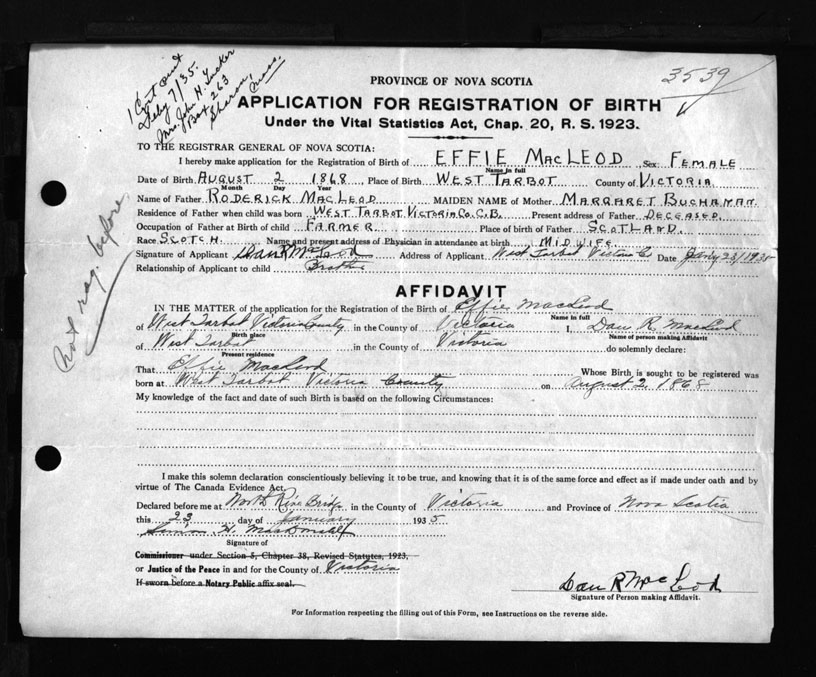 1 Cert out
Feby 7/35.
Mrs John H. Tucker
Box 263
Sharon,
Mass.
3539
PROVINCE OF NOVA SCOTIA
APPLICATION FOR REGISTRATION OF BIRTH
Under the Vital Statistics Act, Chap. 20, R. S. 1923.
TO THE REGISTRAR GENERAL OF NOVA SCOTIA:
I hereby make application for the Registration of Birth of EFFIE MACLEOD Sex FEMALE
Name in full
Date of Birth AUGUST 2 1868, Place of Birth WEST TARBOT County of VICTORIA
Month Day Year
Name of Father RODERICK MACLEOD MAIDEN NAME of Mother MARGARET BUCHANAN.
Residence of Father when child was born WEST TARBOT, VICTORIA CO. C.B. Present address of Father DECEASED.
Occupation of Father at Birth of child FARMER Place of birth of Father SCOTLAND.
Race SCOTCH. Name and present address of Physician in attendance at birth MIDWIFE
Signature of Applicant Dan R McLeod Address of Applicant West Tarbot Victoria Co Date Jany 23/1935
Relationship of Applicant to child Brother
not reg. before
AFFIDAVIT
IN THE MATTER of the application for Registration of the Birth of Effie MacLeod
Name in full
of West Tarbot Victoria County in the County of Victoria I, Dan R. MacLeod
Birth place Name of person making Affidavit
of West Tarbot in the County of Victoria do solemnly declare:
Present residence
That Effie MacLeod Whose Birth is sought to be registered was
born at West Tarbot Victoria County on August 2, 1868
My knowledge of the fact and date of such Birth is based on the following Circumstances:
I make this solemn declaration conscientiously believing it to be true, and knowing that it is of the same force and effect as if made under oath and by
virtue of The Canada Evidence Act.
Declared before me at North River Bridge in the County of Victoria and Province of Nova Scotia
this 23 day of January 1935
H. MacDonald
Signature of
Commissioner under Section 5, Chapter 38, Revised Statutes, 1923,
or Justice of the Peace in and for the County of Victoria
If sworn before a Notary Public affix seal.
Dan R MacLeod
Signature of Person making Affidavit.
For Information respecting the filling out of this Form, see Instructions on the reverse side.